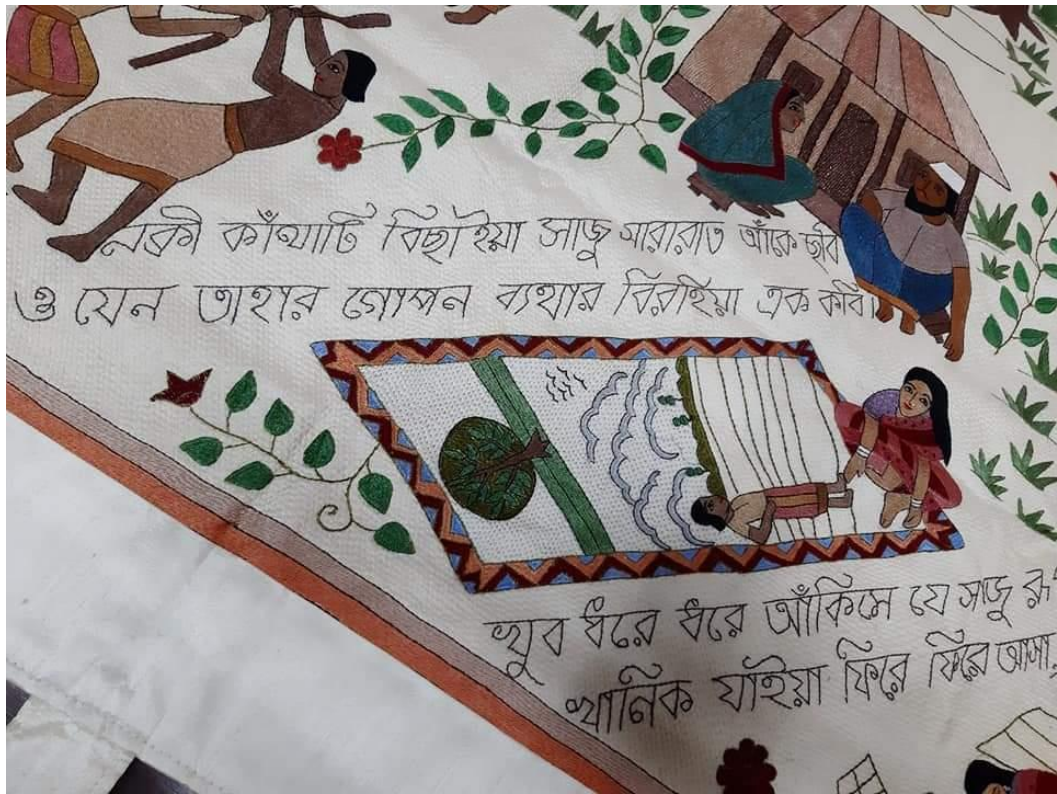 নকসী কাঁথাটি বিছাইয়া সাজু সারারাত আঁকে ছবি
ও যেন তাহার গোপন ব্যথার বিরহিয়া এক কবি।
খুব ধরে ধরে আঁকিল যে সাজু
খানিক যাইয়া ফিরে ফিরে আসা